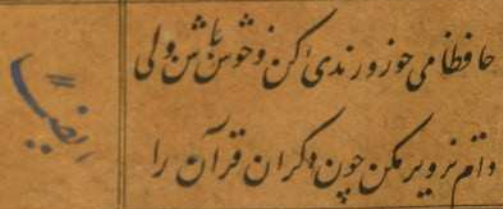 حافظا می خور و رندی کن و خوش باش ولی
دام تزویر مکن چون دگران قرآن را
ایضاً